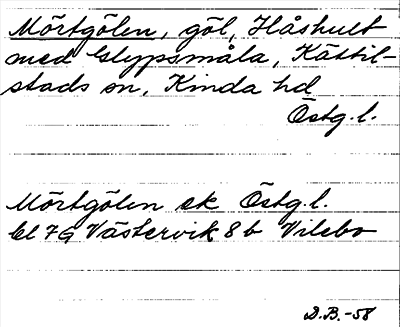 Mörtgölen, göl, Håshult
med Glypsmåla, Kättil-
stads sn, Kinda hd
Östg.l.
Mörtgölen ek Östg.l.
bl 7G Västervik 8b Vilebo
D.B.-58